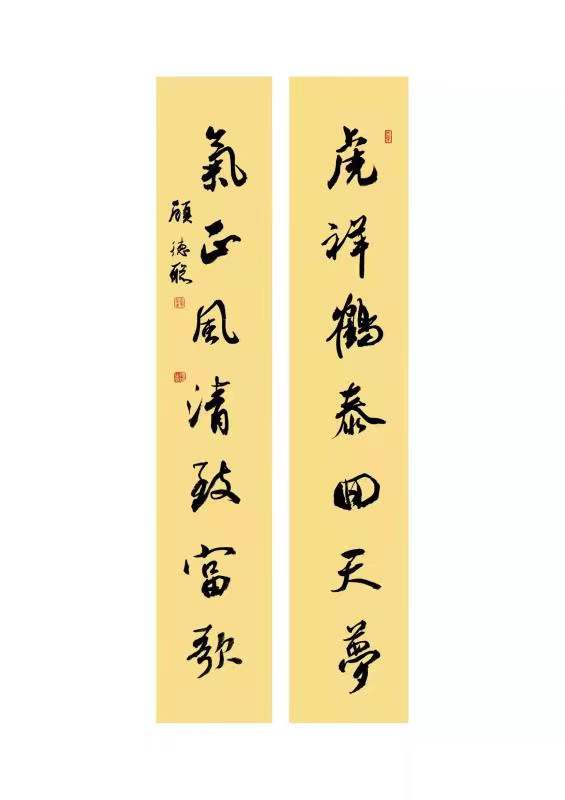 虎祥鶴泰回天夢
氣正風清致富歌
顧德聰